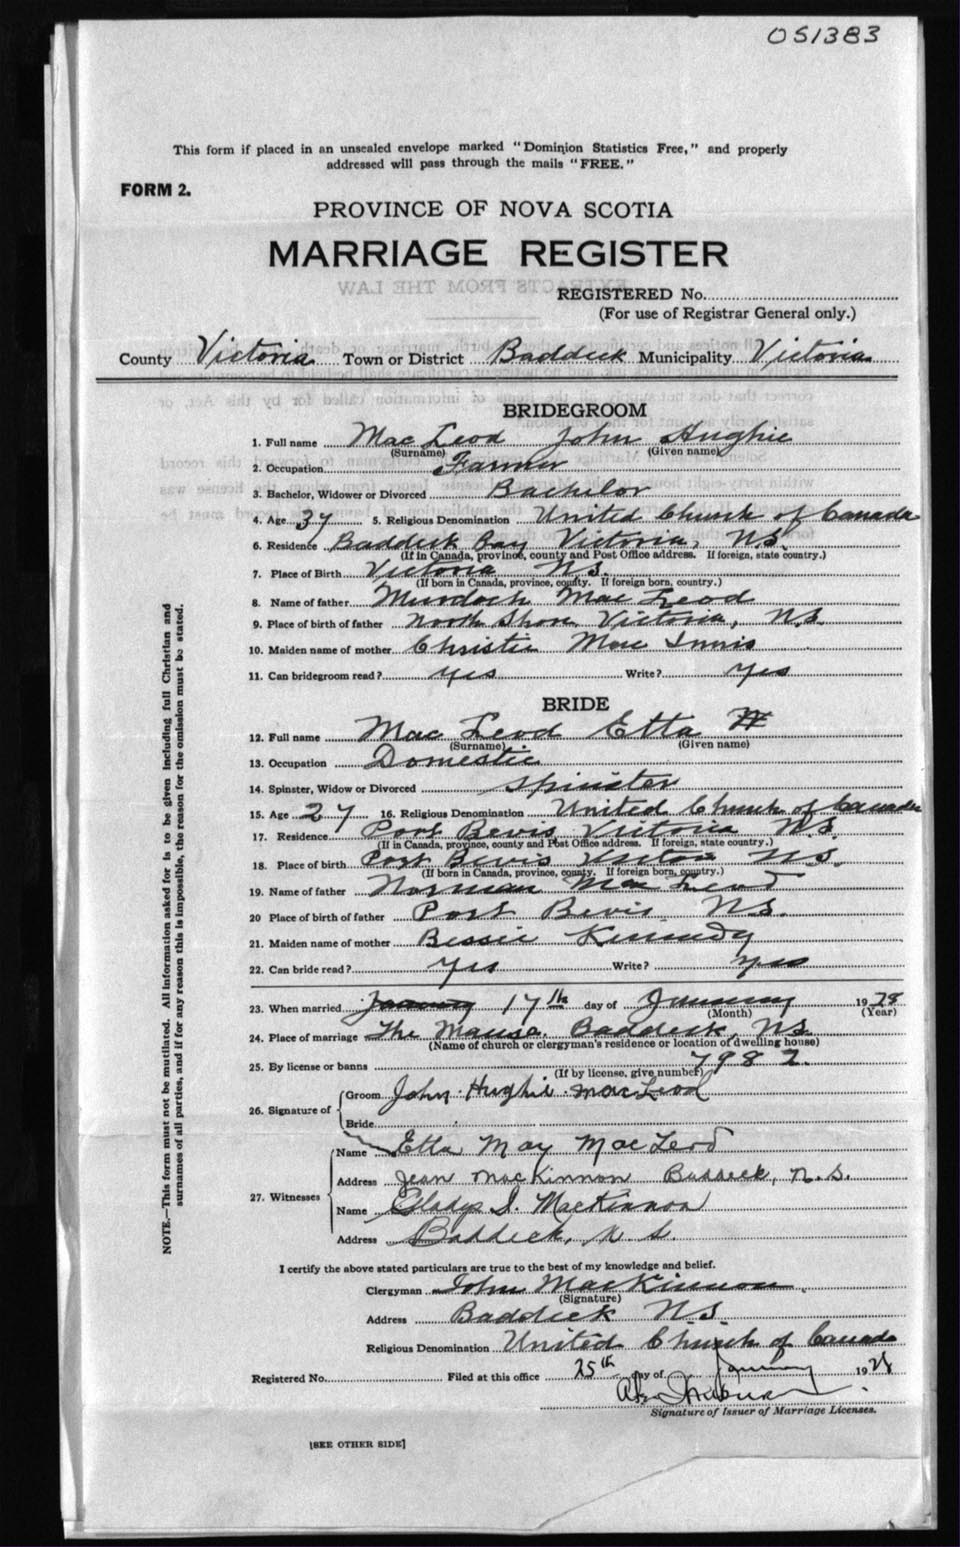 051383
This form if placed in an unsealed envelope marked "Dominion Statistics Free," and properly
addressed will pass through the mails "FREE."
FORM 2.
PROVINCE OF NOVA SCOTIA
MARRIAGE REGISTER
EXTRACTS FROM THE LAW
REGISTERED No.
(For use of Registrar General only.)
County Victoria Town or District Baddeck Municipality Victoria
BRIDEGROOM
1. Full name Mac Leod John Hughie
(Surname) (Given name)
2. Occupation Farmer
3. Bachelor, Widower or Divorced Bachelor
4. Age 37 5. Religious Denomination United Church of Canada
6. Residence Baddeck Bay Victoria, N.S.
(If in Canada, province, county and Post Office address. If foreign, state country.)
7. Place of Birth Victoria N.S.
(If born in Canada, province, county. If foreign born, country.)
8. Name of father Murdoch Mac Leod
9. Place of birth of father North Shore Victoria, N.S.
10. Maiden name of mother Christie Mac Innis
11. Can bridegroom read? yes Write? yes
BRIDE
12. Full name Mac Leod Etta
(Surname) (Given name)
13. Occupation Domestic
14. Spinster, Widow or Divorced Spinster
15. Age 27 16. Religious Denomination United Church of Canada
17. Residence Port Bevis Victoria N.S.
(If in Canada, province, county and Post Office address. If foreign, state country.)
18. Place of birth Port Bevis Victoria N.S.
(If born in Canada, province, county. If foreign born, country.)
19. Name of father Norman Mac Leod
20 Place of birth of father Port Bevis N.S.
21. Maiden name of mother Bessie Kennedy
22. Can bride read? yes Write? yes
23. When married January 17th day of January 1928
(Month) (Year)
24. Place of marriage The Manse. Baddeck, N.S.
(Name of church or clergyman's residence or location of dwelling house)
25. By license or banns 7982.
(If by license, give number)
26. Signature of Groom John Hughie MacLeod
Bride
Name Etta May MacLeod
Address Jean MacKinnon Baddeck, N.S.
27. Witnesses
Name Gladys S. MacKinnon
Address Baddeck, N.S.
I certify the above stated particulars are true to the best of my knowledge and belief.
Clergyman John MacKinnon
(Signature)
Address Baddeck N.S.
Religious Denomination United Church of Canada
Registered No. Filed at this office 25th day of January 1928
Signature of Issuer of Marriage Licenses.
[SEE OTHER SIDE]
NOTE.—This form must not be mutilated. All information asked for is to be given including full Christian and
surnames of all parties, and if for any reason this is impossible, the reason for the omission must be stated.